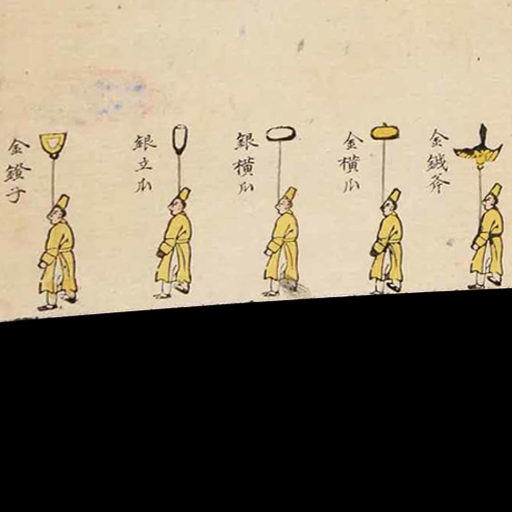 金鐵斧
金橫瓜
銀橫瓜
銀立瓜
金鐙子